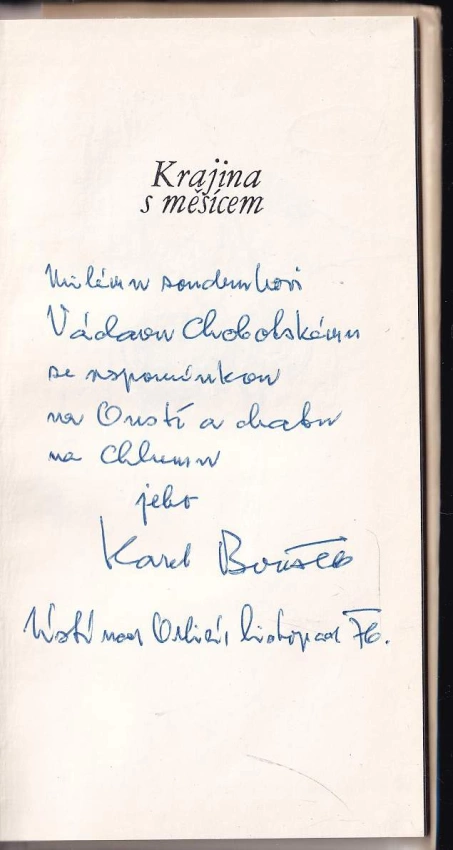 Krajina
s měsícem
Milému soudruhovi
Václavu Chobotskému
se vzpomínkou
na Oustí a chatu
na Chlumu
jeho
Karel Boušek
Ústí nad Orlicí, listopad 76.